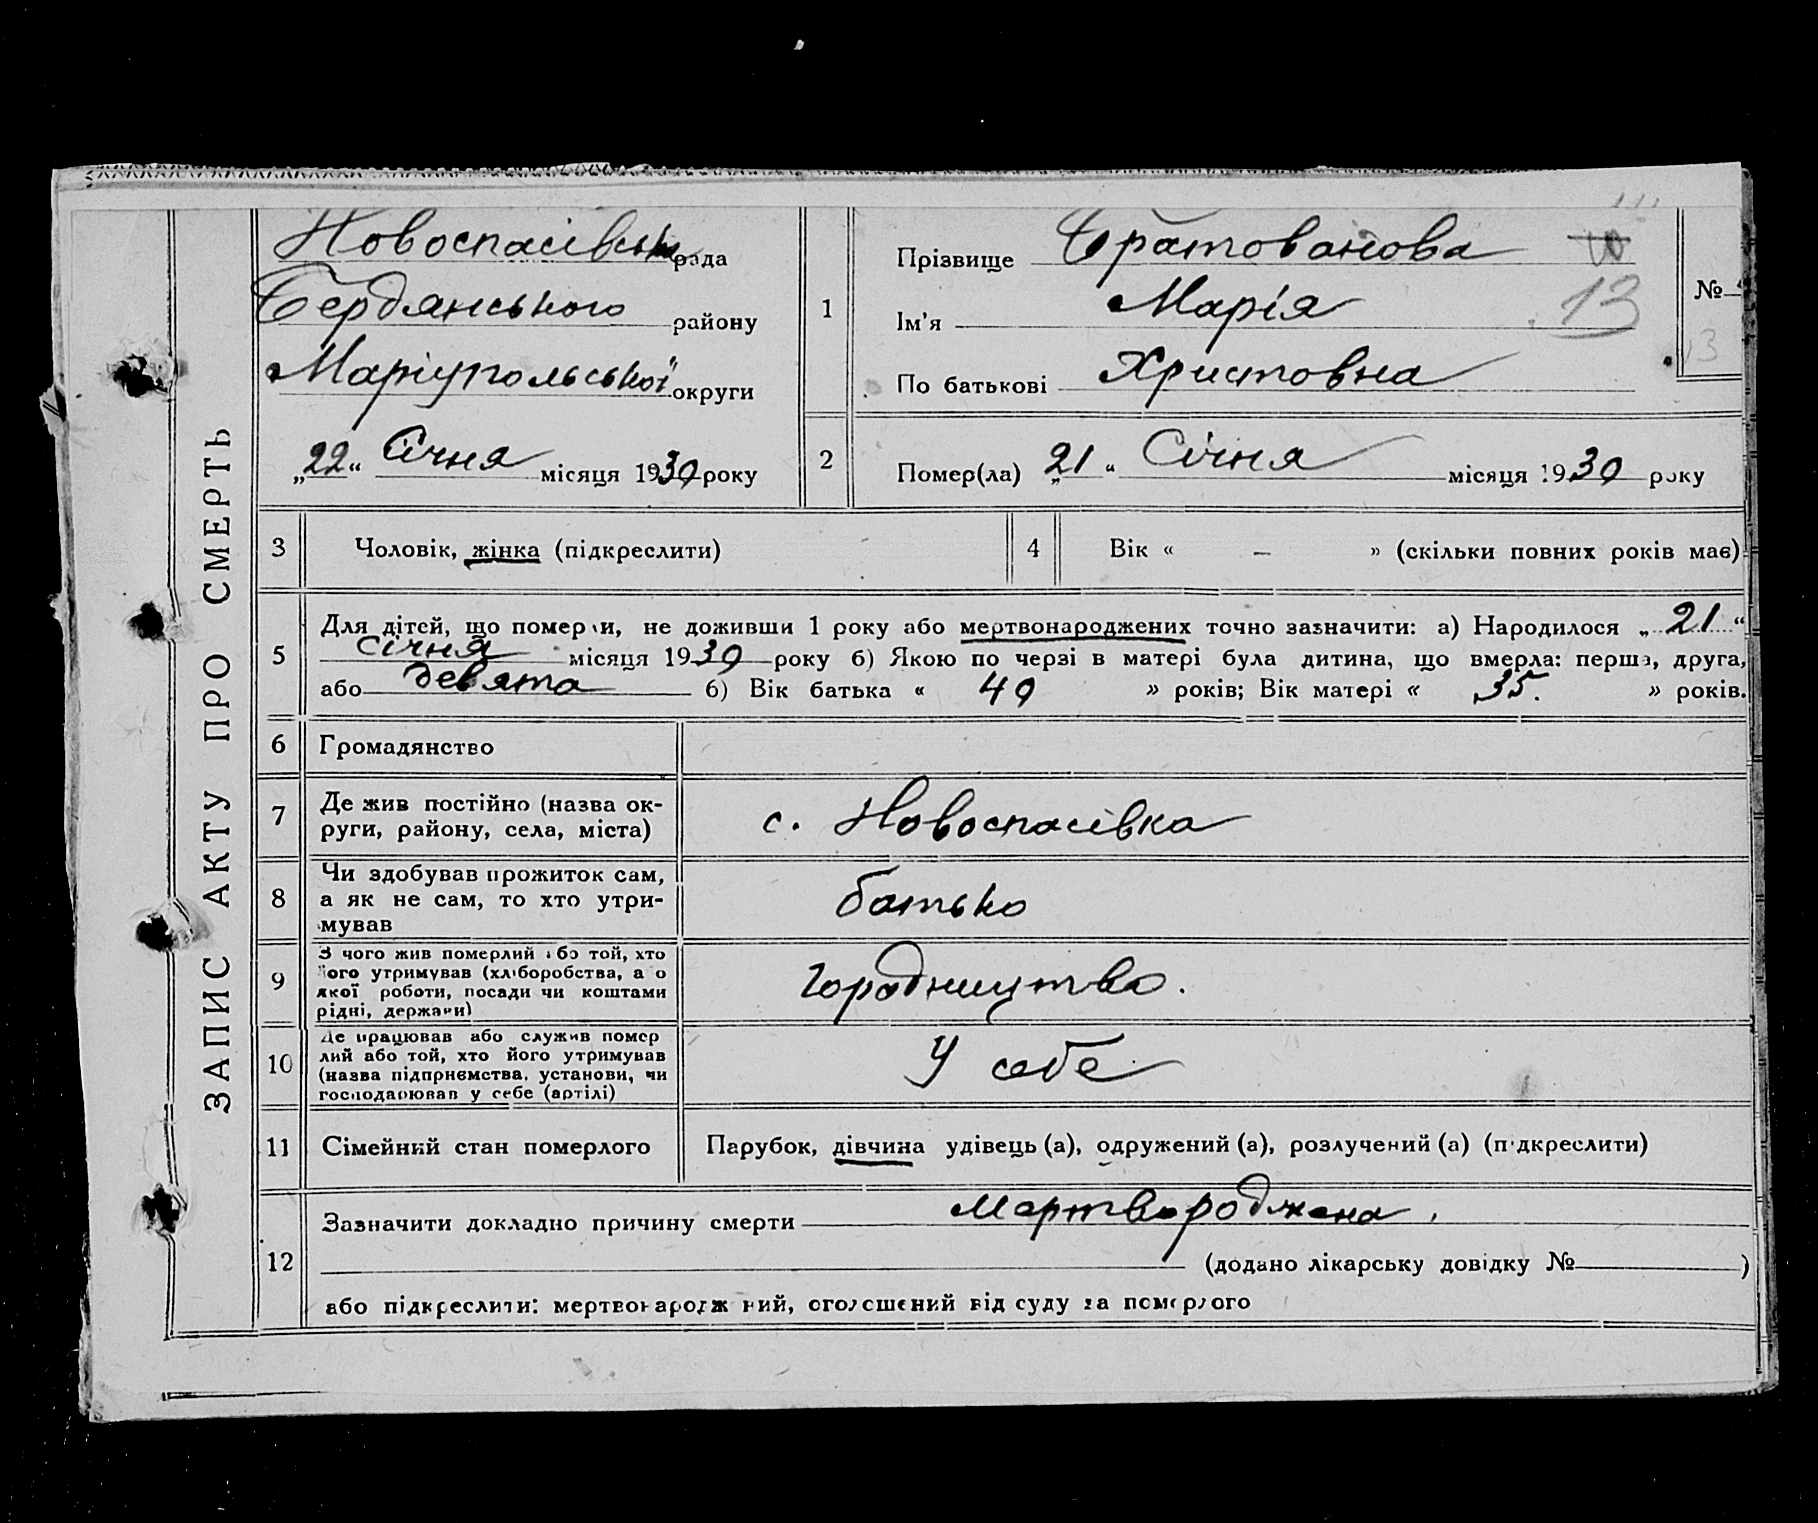 ЗАПИС АКТУ ПРО СМЕРТЬ
Новоспасівська рада
Бердянського району
Маріупольської округи
„22“ Січня місяця 1930 року
1
Прізвище Братованова
Ім'я Марія 13
По батькові Христовна
№
13
2
Помер(ла) „21“ Січня місяця 1930 року
3 Чоловік, жінка (підкреслити)
4 Вік « — » (скільки повних років має)
5 Для дітей, що померли, не доживши 1 року або мертвонароджених точно зазначити: а) Народилося „21“
Січня місяця 1930 року б) Якою по черзі в матері була дитина, що вмерла: перша, друга,
або девята б) Вік батька « 40 » років; Вік матері « 35. » років.
6 Громадянство
7 Де жив постійно (назва ок-
руги, району, села, міста) с. Новоспасівка
8 Чи здобував прожиток сам,
а як не сам, то хто утри-
мував батько
9 З чого жив померлий або той, хто
його утримував (хліборобства, а о
якої роботи, посади чи коштами
рідні, держави) городництво.
10 Де працював або служив помер
лий або той, хто його утримував
(назва підприємства, установи, чи
господарював у себе (артілі) У себе
11 Сімейний стан померлого Парубок, дівчина удівець (а), одружений (а), розлучений (а) (підкреслити)
12 Зазначити докладно причину смерти Мертвороджена.
(додано лікарську довідку № )
або підкреслити: мертвонароджений, оголошений від суду за померлого